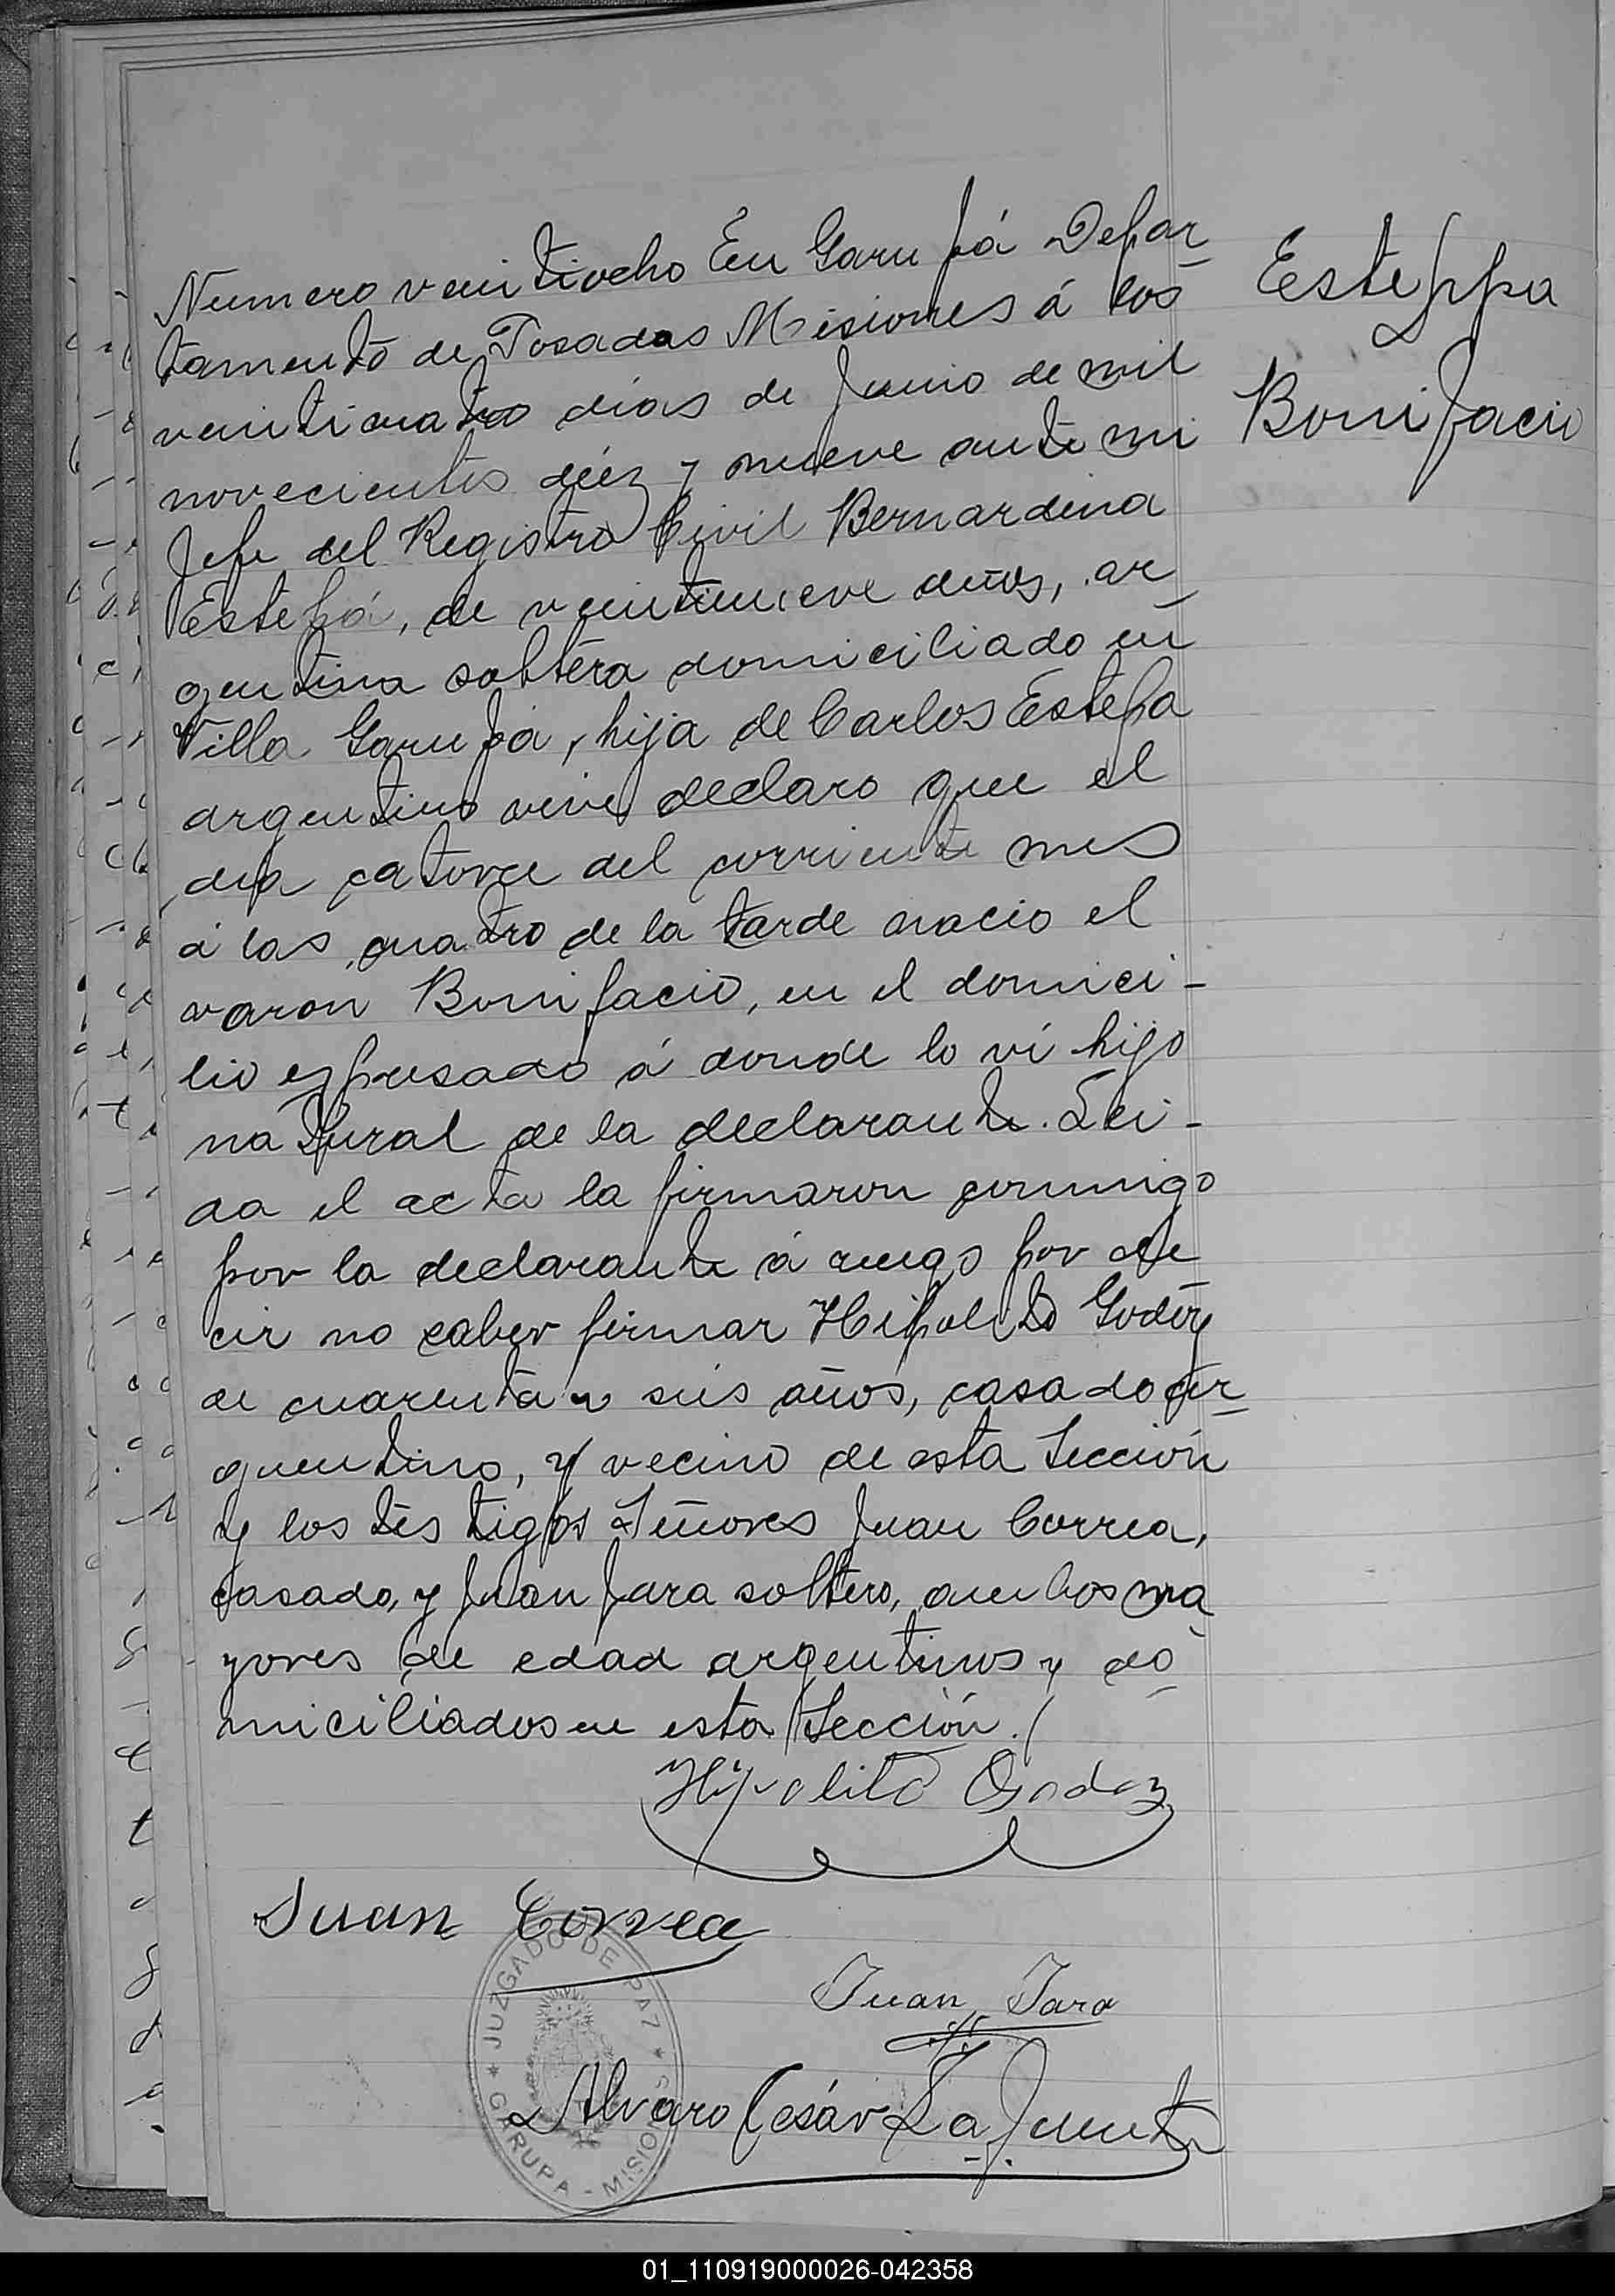 Numero veintiocho En Garupá Depar-
tamento de Posadas Misiones á los
veinticuatro dias de Junio de mil
novecientos diéz y nueve ante mi
Jefe del Registro Civil Bernardina
Estepá, de veintinueve años, ar-
gentina soltera domiciliado en
Villa Garupá, hija de Carlos Estepa
argentino vive declaro que el
dia catorce del corriente mes
á las cuatro de la tarde nacio el
varon Bonifacio, en el domici-
lio espresado á donde lo vi hijo
natural de la declarante. Lei-
da el acta la firmaron conmigo
por la declarante á ruego por de
cir no saber firmar Hipolito Godoy
de cuarenta y seis años, casado ar-
gentino, y vecino de esta Sección
y los testigos Señores Juan Correa,
casado, y Juan Jara soltero, ambos ma
yores de edad argentinos y do-
miciliados en esta Sección.
Hipolito Godoy
Juan Correa
Juan Jara
Alvaro César La Fuente
Esteppa
Bonifacio
JUZGADO DE PAZ
GARUPA - MISIONES
01_110919000026-042358